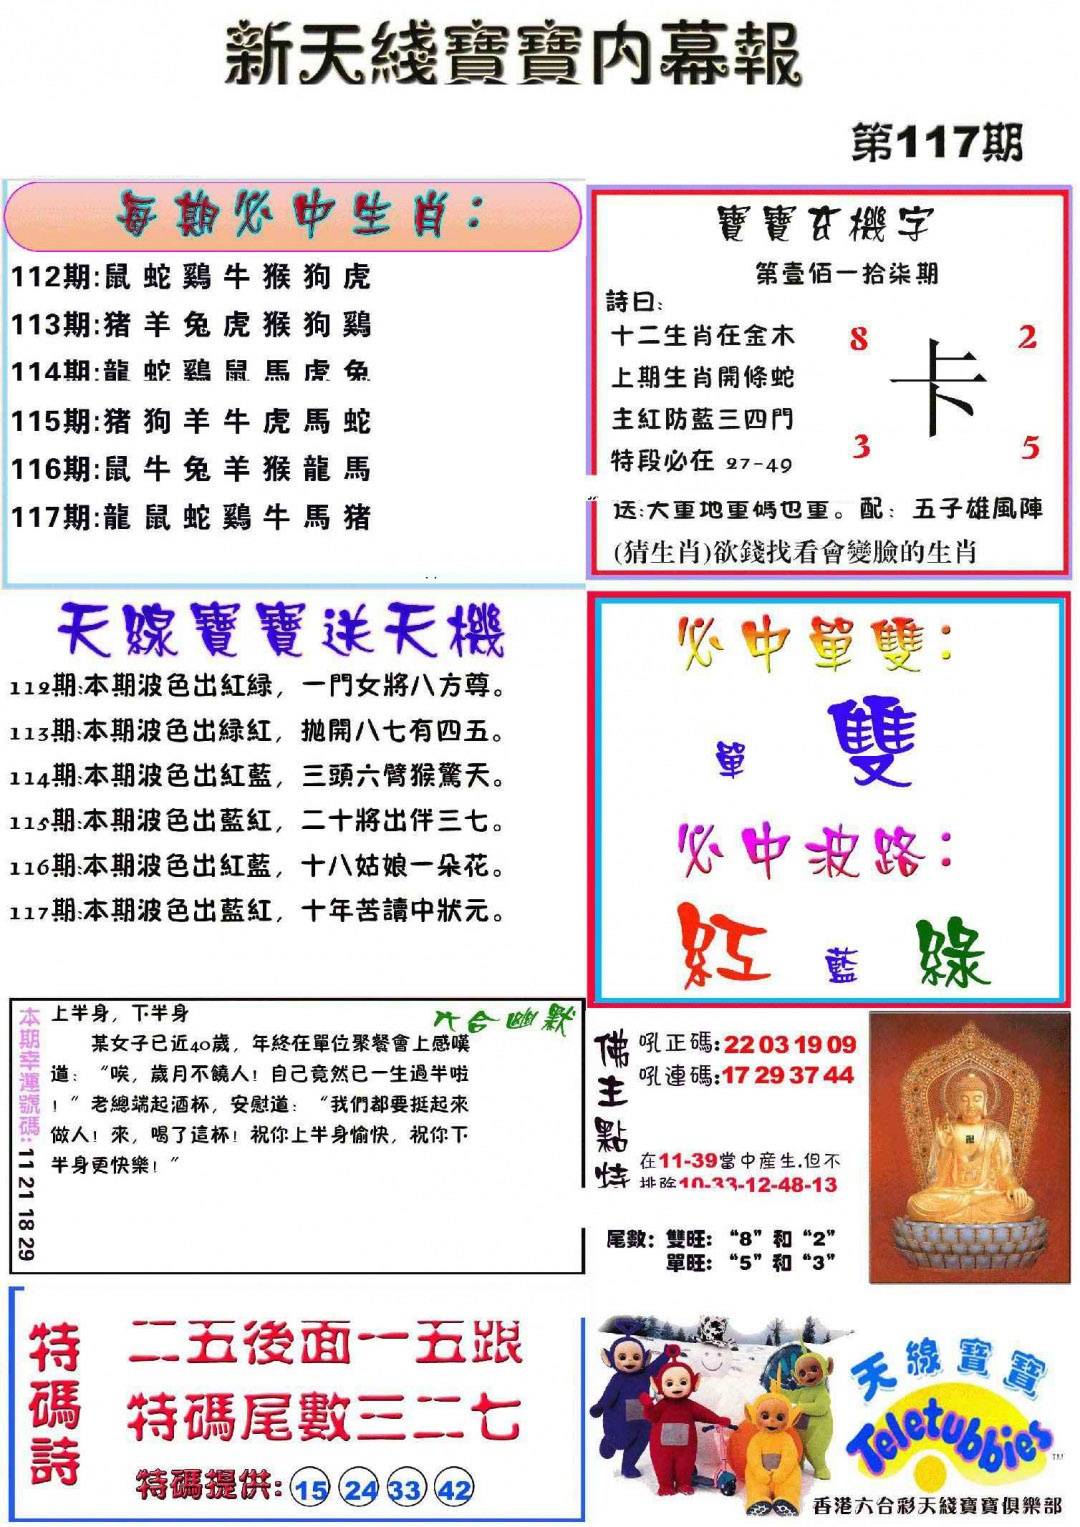 新天綫寶寶内幕報
第117期
每期必中生肖：
112期:鼠蛇鷄牛猴狗虎
113期:猪羊兔虎猴狗鷄
114期:龍蛇鷄鼠馬虎兔
115期:猪狗羊牛虎馬蛇
116期:鼠牛兔羊猴龍馬
117期:龍鼠蛇鷄牛馬猪
寶寶玄機字
第壹佰一拾柒期
詩曰:
十二生肖在金木
上期生肖開條蛇
主紅防藍三四門
特段必在 27-49
8 2
卡
3 5
送:大重地重碼也重。配：五子雄風陣
(猜生肖)欲錢找看會變臉的生肖
天線寶寶送天機
112期:本期波色出紅緑，一門女將八方尊。
113期:本期波色出緑紅，抛開八七有四五。
114期:本期波色出紅藍，三頭六臂猴驚天。
115期:本期波色出藍紅，二十將出伴三七。
116期:本期波色出紅藍，十八姑娘一朵花。
117期:本期波色出藍紅，十年苦讀中狀元。
必中單雙：
單 雙
必中波路：
紅 藍 綠
本期幸運號碼:11 21 18 29
六合幽默
上半身，下半身
某女子已近40歲，年終在單位聚餐會上感嘆
道：“唉，歲月不饒人！自己竟然已一生過半啦
！”老總端起酒杯，安慰道：“我們都要挺起來
做人！來，喝了這杯！祝你上半身愉快，祝你下
半身更快樂！”
佛主點特
吼正碼:22 03 19 09
吼連碼:17 29 37 44
在11-39當中産生.但不
排除10-33-12-48-13
尾數：雙旺：“8”和“2”
單旺：“5”和“3”
特碼詩
二五後面一五跟
特碼尾數三二七
特碼提供: 15 24 33 42
天線寶寶
Teletubbies
TM
香港六合彩天綫寶寶俱樂部